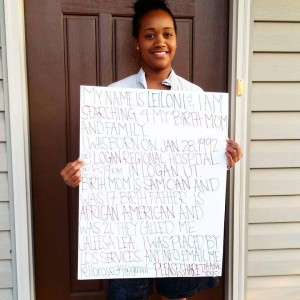 MY NAME IS LEILONI & I AM
SEARCHING 4 MY BIRTH MOM
AND FAMILY.
I WAS BORN ON JAN 28, 1992
@ LOGAN REGIONAL HOSPITAL
IN LOGAN UT.
BIRTH MOM IS SAMOAN AND
WAS 17. BIRTH FATHER IS
AFRICAN AMERICAN AND
WAS 21. THEY CALLED ME
I WAS PLACED BY
LDS SERVICES. ANY INFO EMAIL ME
PLEASE SHARE